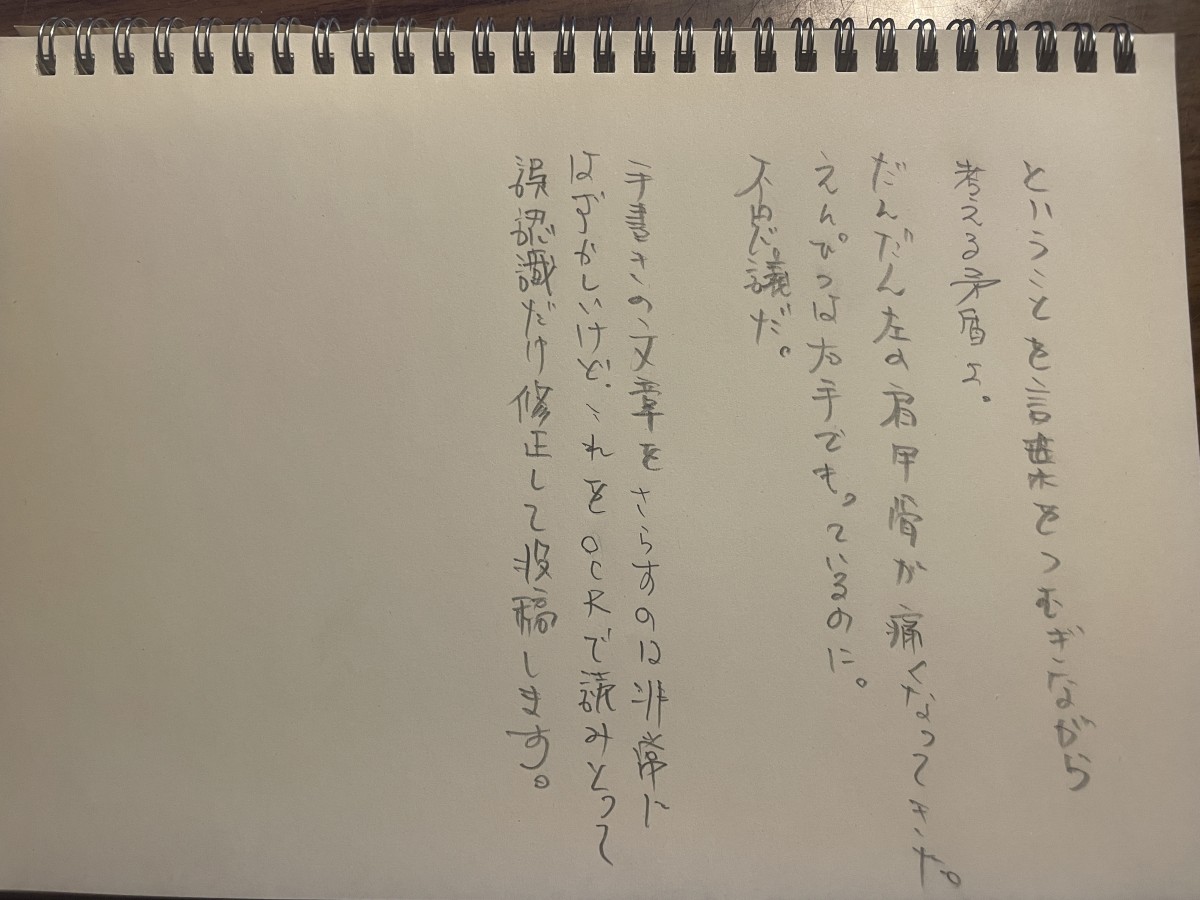 ということを言葉をつむぎながら
考える矛盾よ。
だんだん左の肩甲骨が痛くなってきた。
えんぴつは右手でもっているのに。
不思議だ。
手書きの文章をさらすのは非常に
はずかしいけど、これをOCRで読みとって
誤認識だけ修正して投稿します。